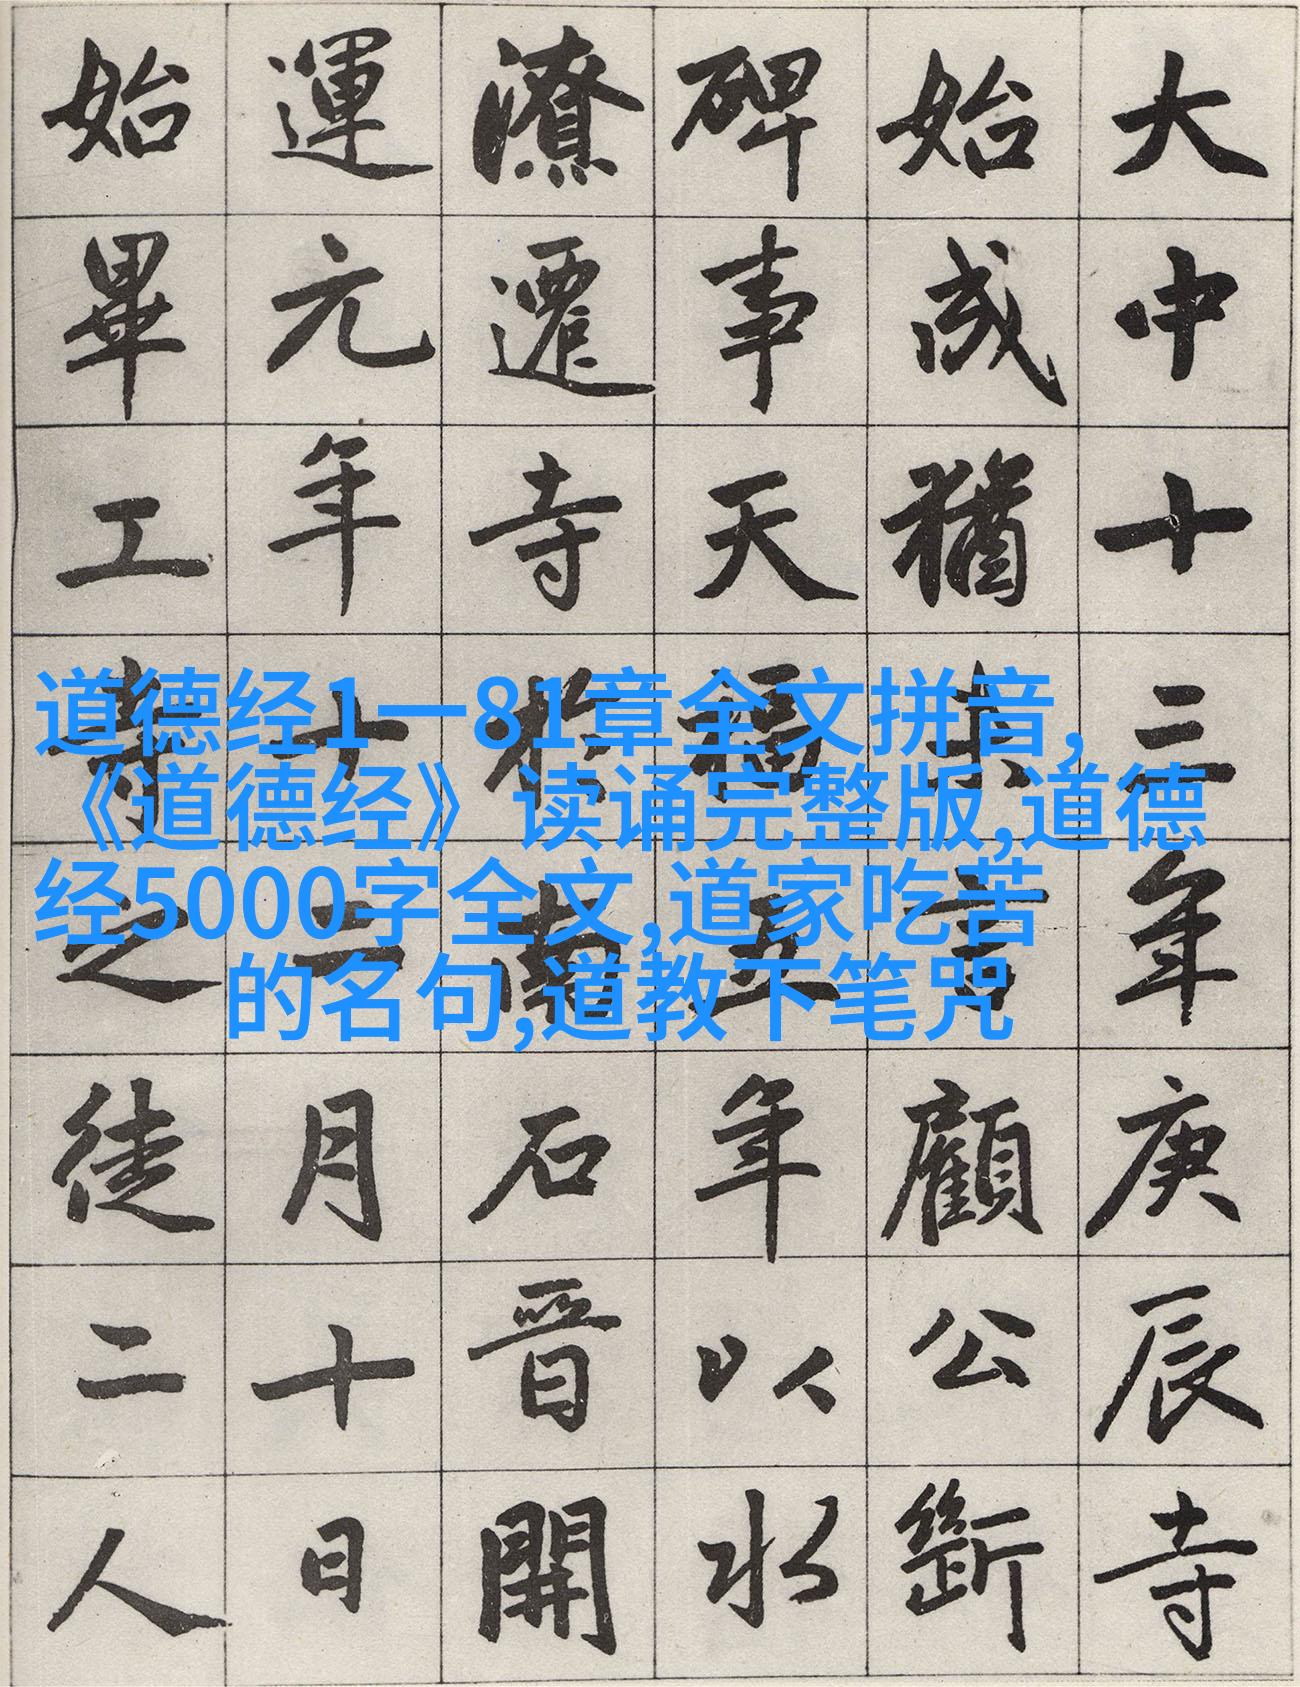 大中十三年庚辰寺
始成猶言顧公斲
碑事天福五年以水
潦遷寺於南石晉開
運元年十二月十日
始畢工之徒二人
道德经1一81章全文拼音,
《道德经》读诵完整版,道德
经5000字全文,道家吃苦
的名句,道教下笔咒